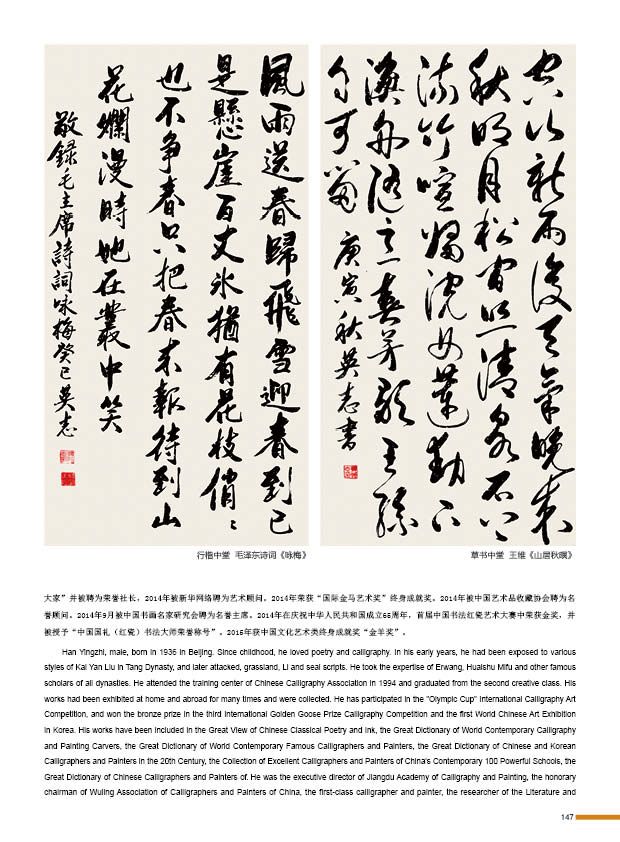 風雨送春歸飛雪迎春到已
是懸崖百丈冰猶有花枝俏〻
也不争春只把春來報待到山
花爛漫時她在叢中笑
敬録毛主席詩詞咏梅癸巳英志
空山新雨後天氣晚來
秋明月松間照清泉石上
流竹喧歸浣女蓮動下
漁舟隨意春芳歇王孫
自可留 庚寅秋英志書
行楷中堂 毛泽东诗词《咏梅》
草书中堂 王维《山居秋暝》
大家”并被聘为荣誉社长，2014年被新华网络聘为艺术顾问。2014年荣获“国际金马艺术奖”终身成就奖。2014年被中国艺术品收藏协会聘为名
誉顾问。2014年9月被中国书画名家研究会聘为名誉主席。2014年在庆祝中华人民共和国成立65周年，首届中国书法红瓷艺术大赛中荣获金奖，并
被授予“中国国礼（红瓷）书法大师荣誉称号”。2015年获中国文化艺术类终身成就奖“金羊奖”。
Han Yingzhi, male, born in 1936 in Beijing. Since childhood, he loved poetry and calligraphy. In his early years, he had been exposed to various
styles of Kai Yan Liu in Tang Dynasty, and later attacked, grassland, Li and seal scripts. He took the expertise of Erwang, Huaishu Mifu and other famous
scholars of all dynasties. He attended the training center of Chinese Calligraphy Association in 1994 and graduated from the second creative class. His
works had been exhibited at home and abroad for many times and were collected. He has participated in the "Olympic Cup" International Calligraphy Art
Competition, and won the bronze prize in the third International Golden Goose Prize Calligraphy Competition and the first World Chinese Art Exhibition
in Korea. His works have been included in the Great View of Chinese Classical Poetry and Ink, the Great Dictionary of World Contemporary Calligraphy
and Painting Carvers, the Great Dictionary of World Contemporary Famous Calligraphers and Painters, the Great Dictionary of Chinese and Korean
Calligraphers and Painters in the 20th Century, the Collection of Excellent Calligraphers and Painters of China's Contemporary 100 Powerful Schools, the
Great Dictionary of Chinese Calligraphers and Painters of. He was the executive director of Jiangdu Academy of Calligraphy and Painting, the honorary
chairman of Wuling Association of Calligraphers and Painters of China, the first-class calligrapher and painter, the researcher of the Literature and
147